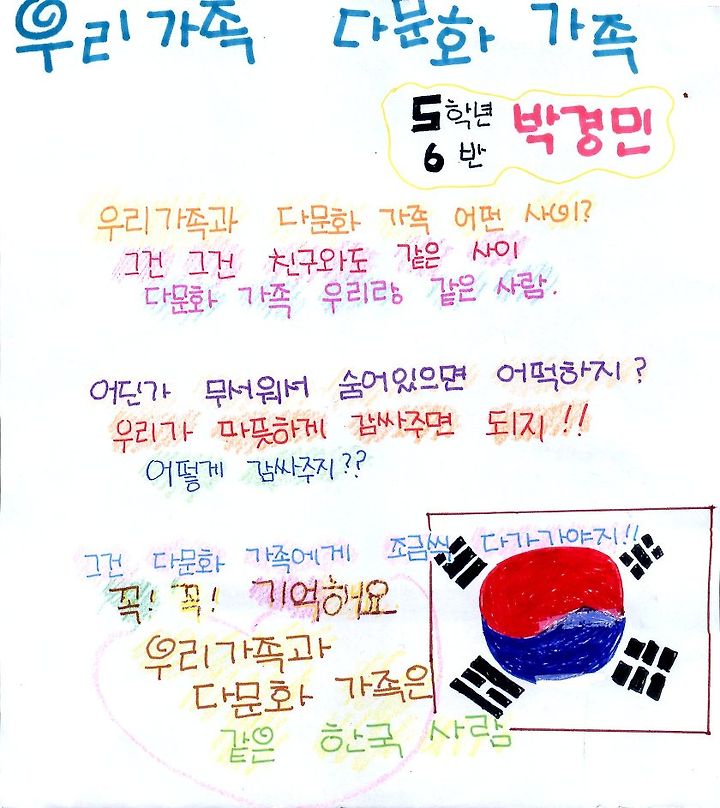 우리가족 다문화 가족
5학년 박경민
6반
우리가족과 다문화 가족 어떤 사이?
그건 그건 친구와도 같은 사이
다문화 가족 우리랑 같은 사람.
어딘가 무서워서 숨어있으면 어떡하지?
우리가 따뜻하게 감싸주면 되지!!
어떻게 감싸주지??
그건 다문화 가족에게 조금씩 다가가야지!!
꼭! 꼭! 기억해요
우리가족과
다문화 가족은
같은 한국 사람